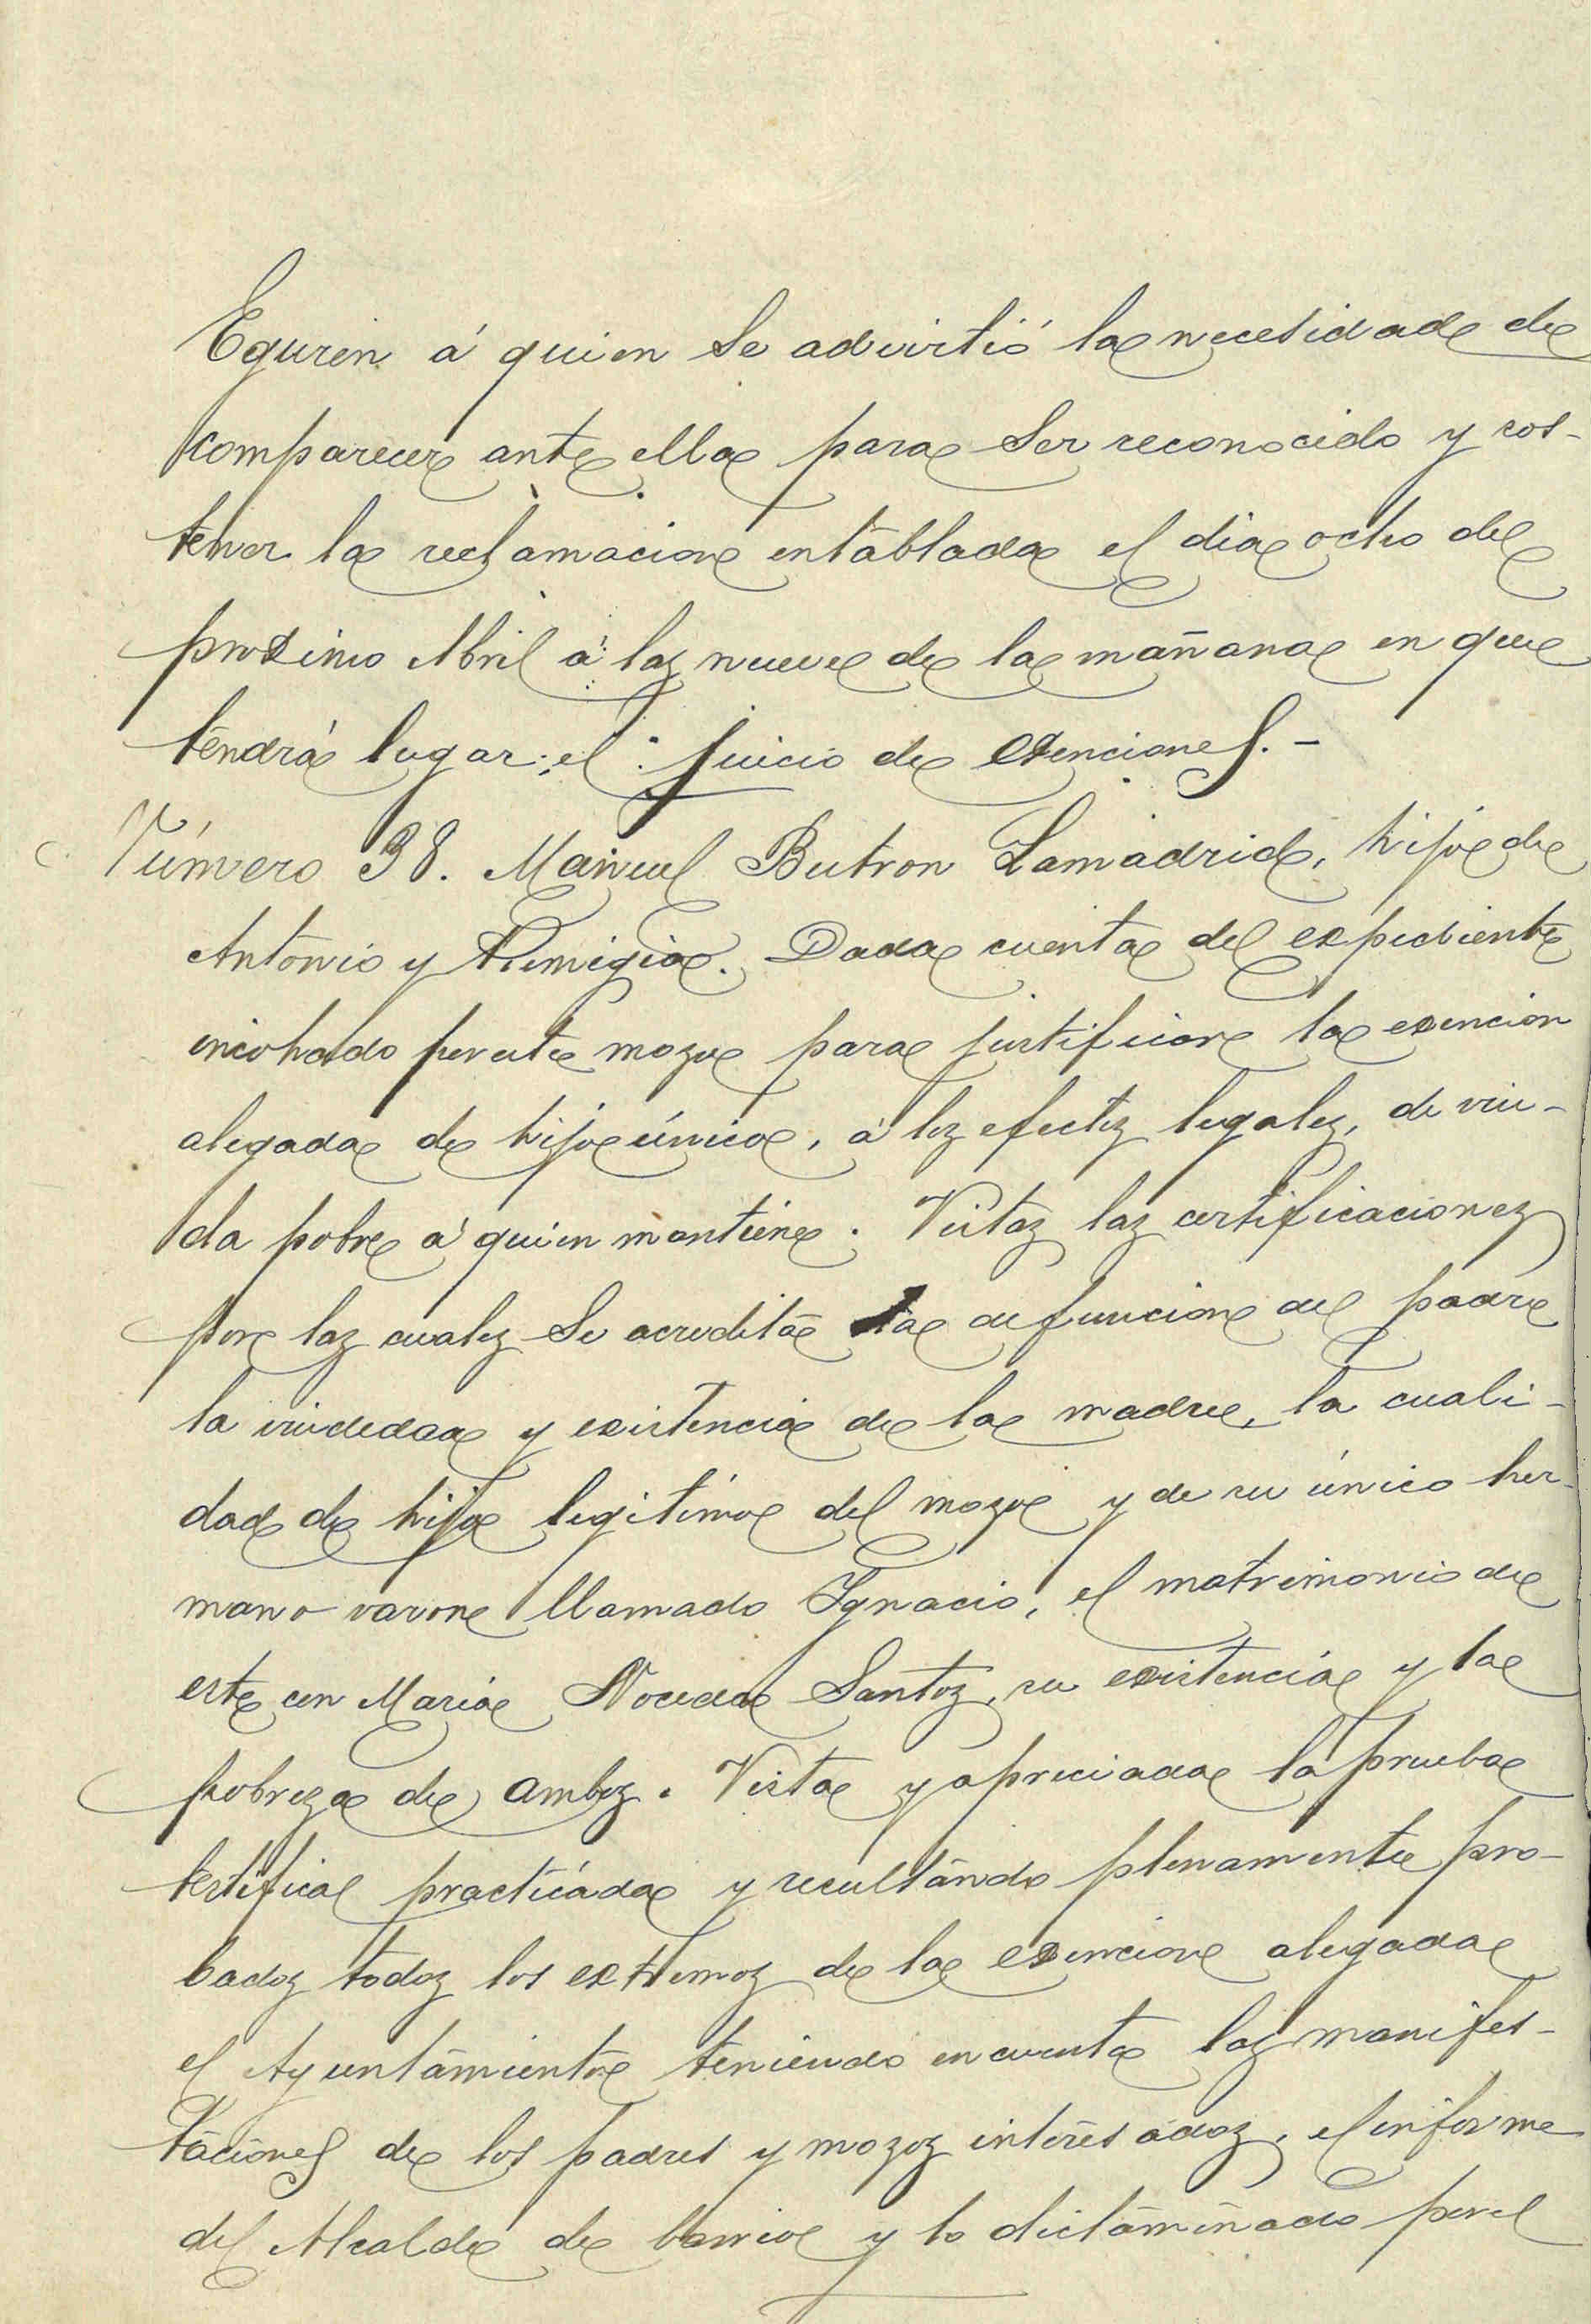 Eguren á quien se advirtió la necesidad de
comparecer ante ella para ser reconocido y sos-
tener la reclamacion entablada el dia ocho del
proximo Abril á las nueve de la mañana en que
tendrá lugar el juicio de exenciones.-
Número 38. Manuel Butron Lamadrid, hijo de
Antonio y Remigia. Dada cuenta del expediente
incohado por este mozo para justificar la exencion
alegada de hijo único, á los efectos legales, de viu-
da pobre á quien mantiene. Vistas las certificaciones
por las cuales se acredita la defuncion del padre
la viudedad y existencia de la madre, la cuali-
dad de hijo legitimo del mozo y de su único her-
mano varon llamado Ignacio, el matrimonio de
este con Maria Noceda Santos, su existencia y la
pobreza de ambos. Vista y apreciada la prueba
testifical practicada y resultando plenamente pro-
bados todos los extremos de la exencion alegada
el Ayuntamiento teniendo en cuenta las manifes-
taciones de los padres y mozos interesados, el informe
del Alcalde de barrio y lo dictaminado por el